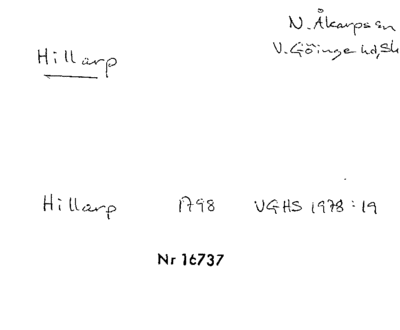 N. Åkarps sn
V. Göinge hd, Sk
Hillarp
Hillarp 1798 VGHS 1978:19
Nr 16737